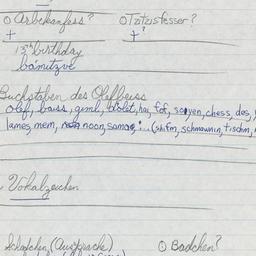 o Arbekanfass? o Tztzisfesser?
+ +?
13th birthday
bamitzve
Buchstaben des Oleffbeiss
olef, baiss, giml, dolet, hai, fof, sojen, chess, des,
lames, mem, noon, samag, ... (shifm, schmawnin, tischm,
Vokalzeichen
Schadchen (Aussprache) o Badchen?